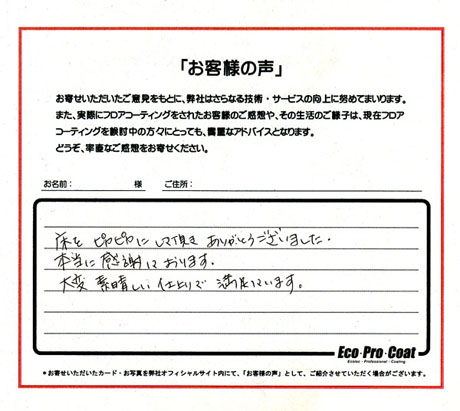 「お客様の声」
お寄せいただいたご意見をもとに、弊社はさらなる技術・サービスの向上に努めてまいります。
また、実際にフロアコーティングをされたお客様のご感想や、その生活のご様子は、現在フロア
コーティングを検討中の方々にとっても、貴重なアドバイスとなります。
どうぞ、率直なご感想をお寄せください。
お名前： 様 ご住所：
床を ピカピカに して頂き ありがとうございました.
本当に 感謝して おります.
大変 素晴しい 仕上りで 満足しています。
Eco・Pro・Coat
Ecolex・Professional・Coating
＊お寄せいただいたカード・お写真を弊社オフィシャルサイト内にて、「お客様の声」として、ご紹介させていただく場合がございます。